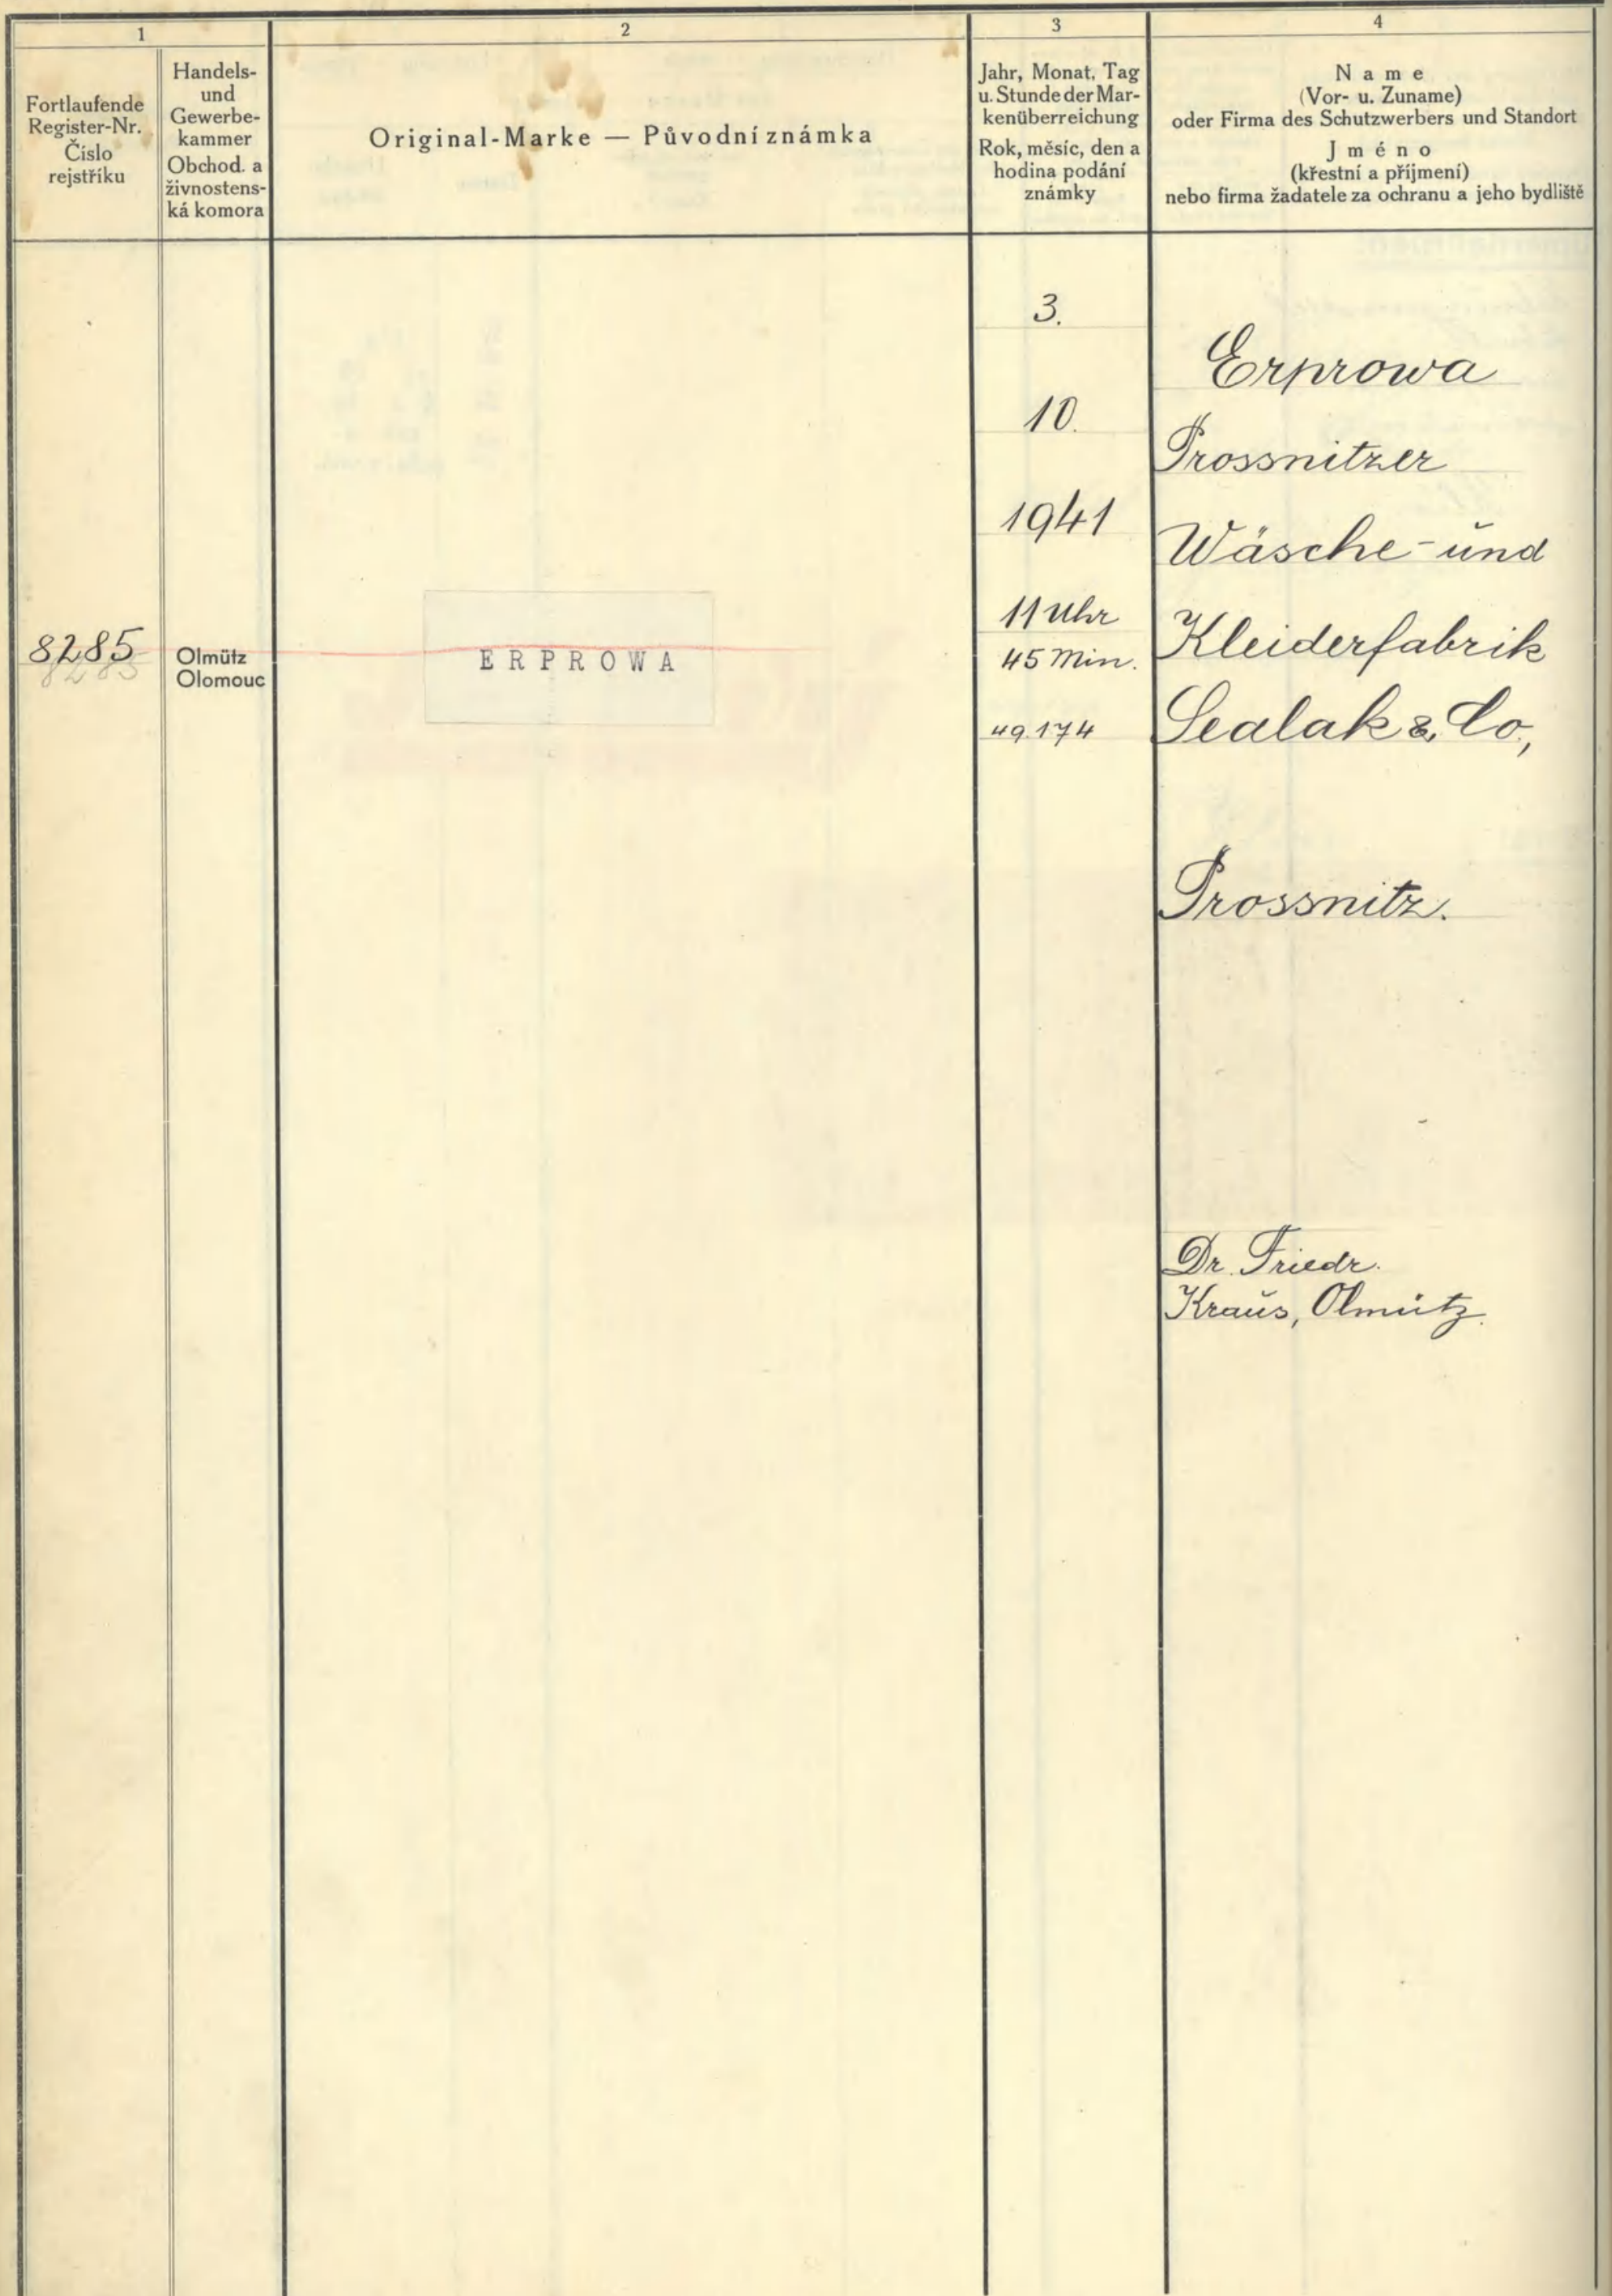 1
2
3
4
Fortlaufende
Register-Nr.
Číslo
rejstříku
Handels-
und
Gewerbe-
kammer
Obchod. a
živnostens-
ká komora
Original-Marke — Původní známka
Jahr, Monat, Tag
u. Stunde der Mar-
kenüberreichung
Rok, měsíc, den a
hodina podání
známky
Name
(Vor- u. Zuname)
oder Firma des Schutzwerbers und Standort
Jméno
(křestní a příjmení)
nebo firma žadatele za ochranu a jeho bydliště
8285
8285
Olmütz
Olomouc
ERPROWA
3.
10.
1941
11 Uhr
45 Min.
49.174
Erprowa
Prossnitzer
Wäsche- und
Kleiderfabrik
Sealak & Co,
Prossnitz.
Dr. Friedr.
Kraus, Olmütz.